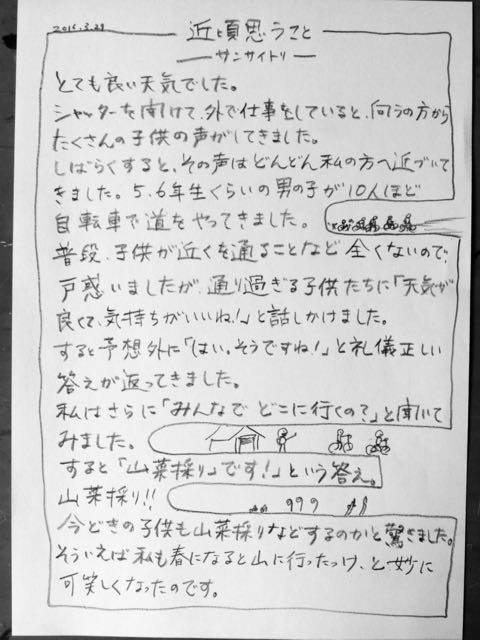 2015.3.29
近頃思うこと
サンサイトリ
とても良い天気でした。
シャッターを開けて、外で仕事をしていると、向うの方から
たくさんの子供の声がしてきました。
しばらくすると、その声はどんどん私の方へ近づいて
きました。5、6年生くらいの男の子が10人ほど
自転車で道をやってきました。
普段、子供が近くを通ることなど全くないので、
戸惑いましたが、通り過ぎる子供たちに「天気が
良くて、気持ちがいいね！」と話しかけました。
すると予想外に「はい。そうですね！」と礼儀正しい
答えが返ってきました。
私はさらに「みんなでどこに行くの？」と聞いて
みました。
すると「山菜採り」です！」という答え。
山菜採り！！
今どきの子供も山菜採りなどするのかと驚きました。
そういえば私も春になると山に行ったっけ、と妙に
可笑しくなったのです。